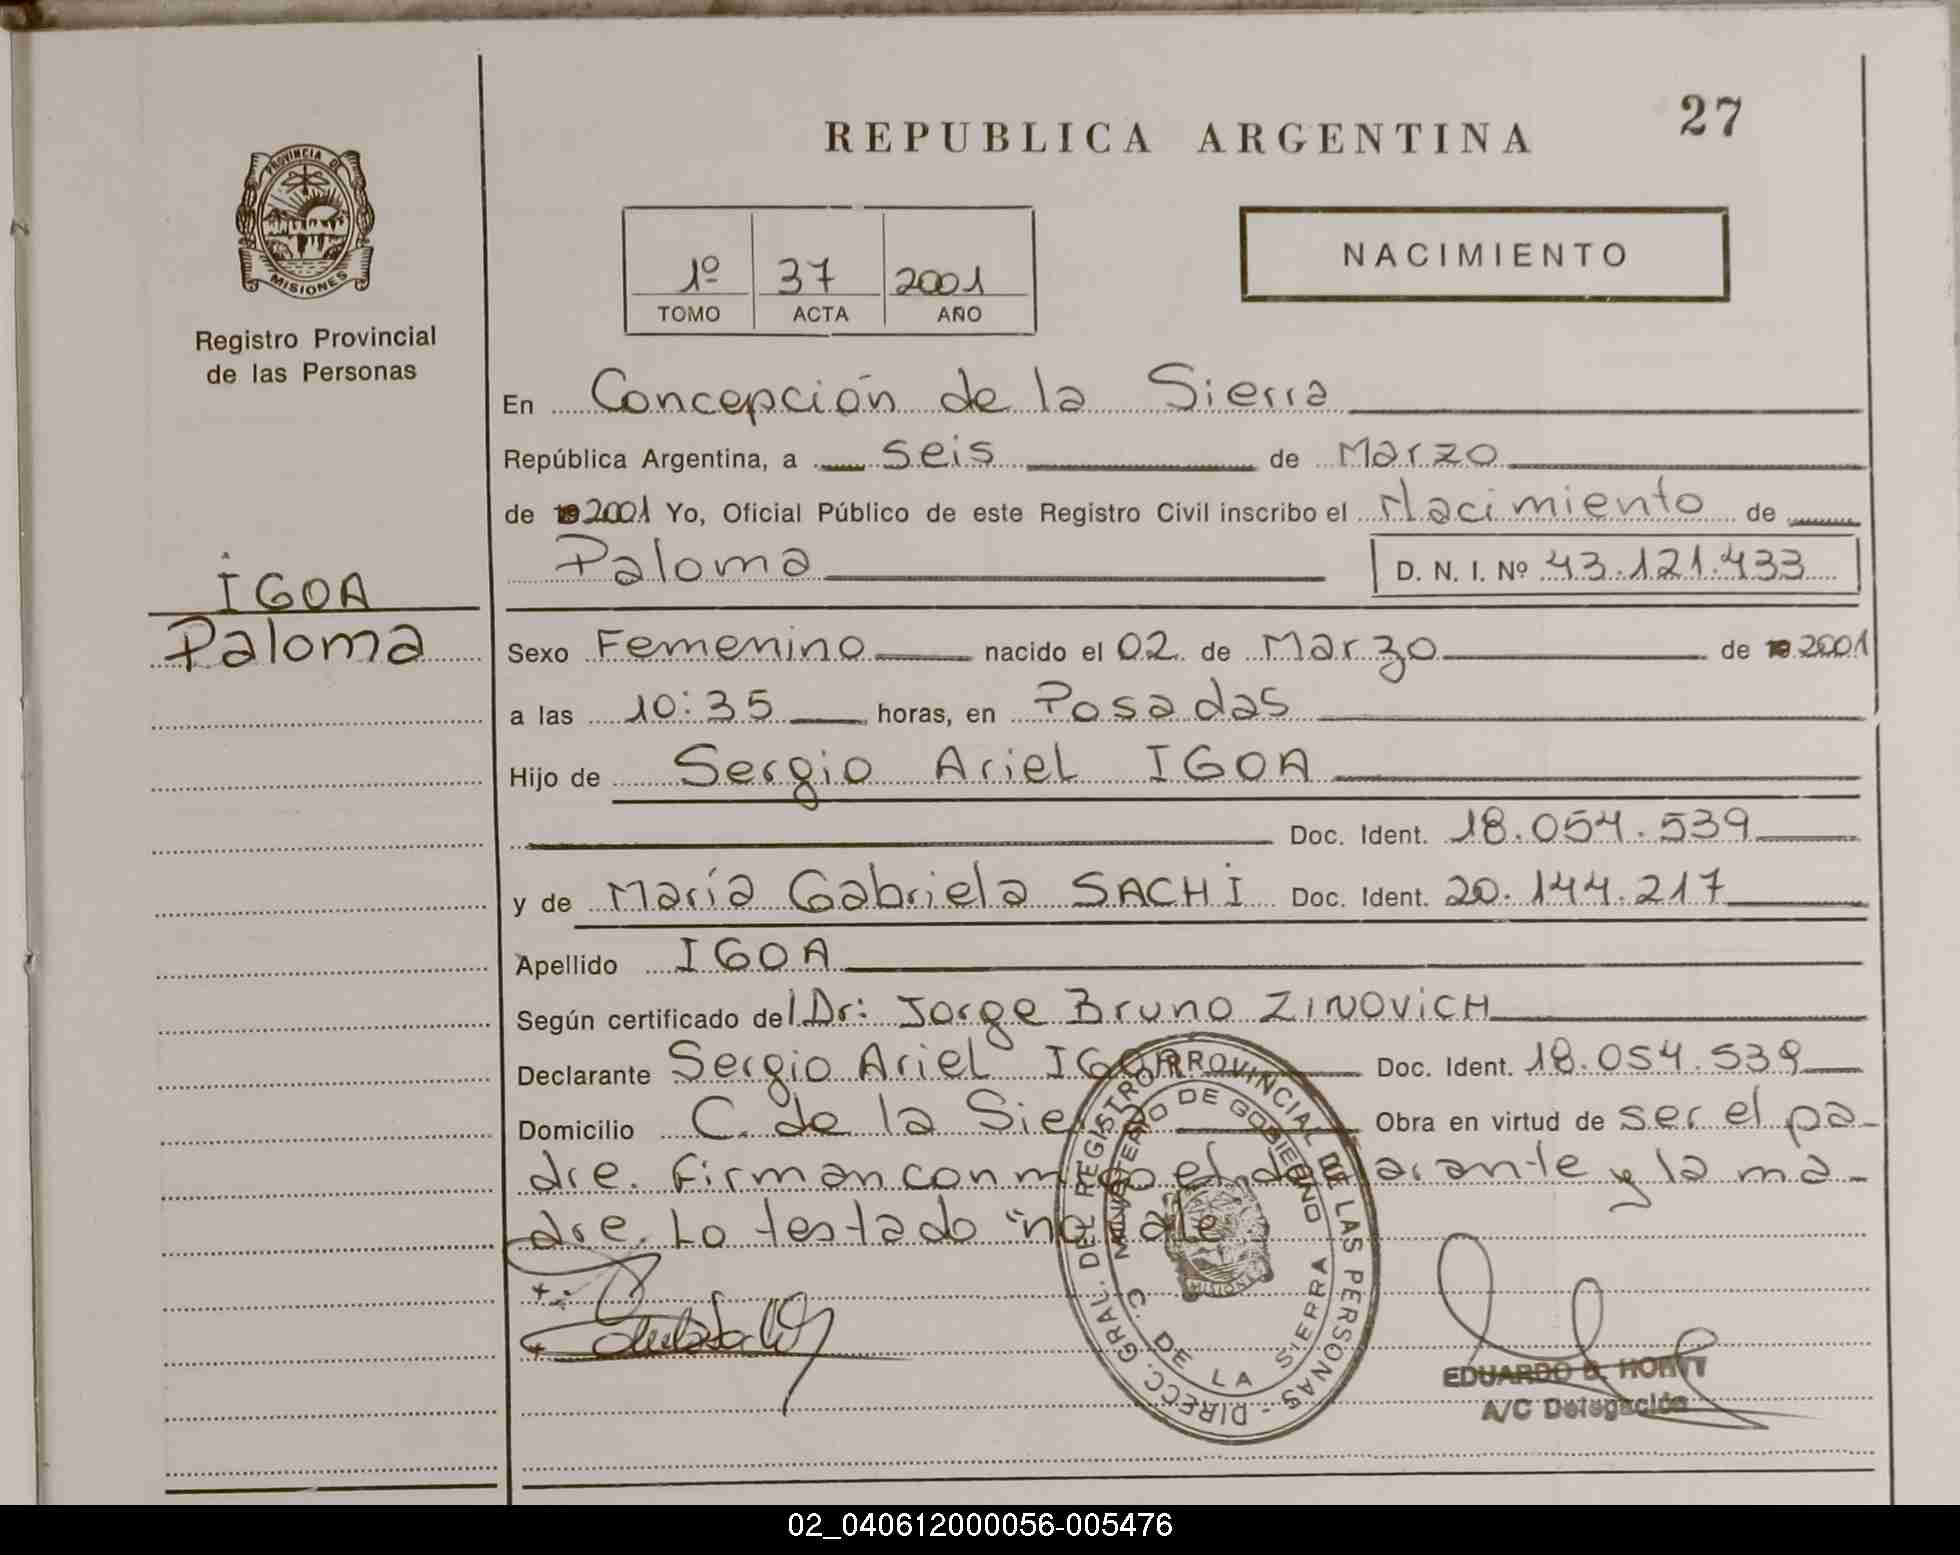 REPUBLICA ARGENTINA
27
PROVINCIA DE
MISIONES
Registro Provincial
de las Personas
1º 37 2001
TOMO ACTA AÑO
NACIMIENTO
En Concepción de la Sierra
República Argentina, a seis de Marzo
de 19 2001 Yo, Oficial Público de este Registro Civil inscribo el Nacimiento de
Paloma D. N. I. Nº 43.121.433
IGOA
Paloma
Sexo Femenino nacido el 02 de Marzo de 19 2001
a las 10:35 horas, en Posadas
Hijo de Sergio Ariel IGOA
Doc. Ident. 18.054.539
y de María Gabriela SACHI Doc. Ident. 20.144.217
Apellido IGOA
Según certificado del Dr: Jorge Bruno ZINOVICH
Declarante Sergio Ariel IGOA Doc. Ident. 18.054.539
Domicilio C. de la Sierra Obra en virtud de ser el pa-
dre. Firman conmigo el declarante y la ma-
dre. Lo testado "no vale
DIRECC. GRAL. DEL REGISTRO PROVINCIAL DE LAS PERSONAS -
MINISTERIO DE GOBIERNO
C. DE LA SIERRA
EDUARDO
A/C Delegación
02_040612000056-005476